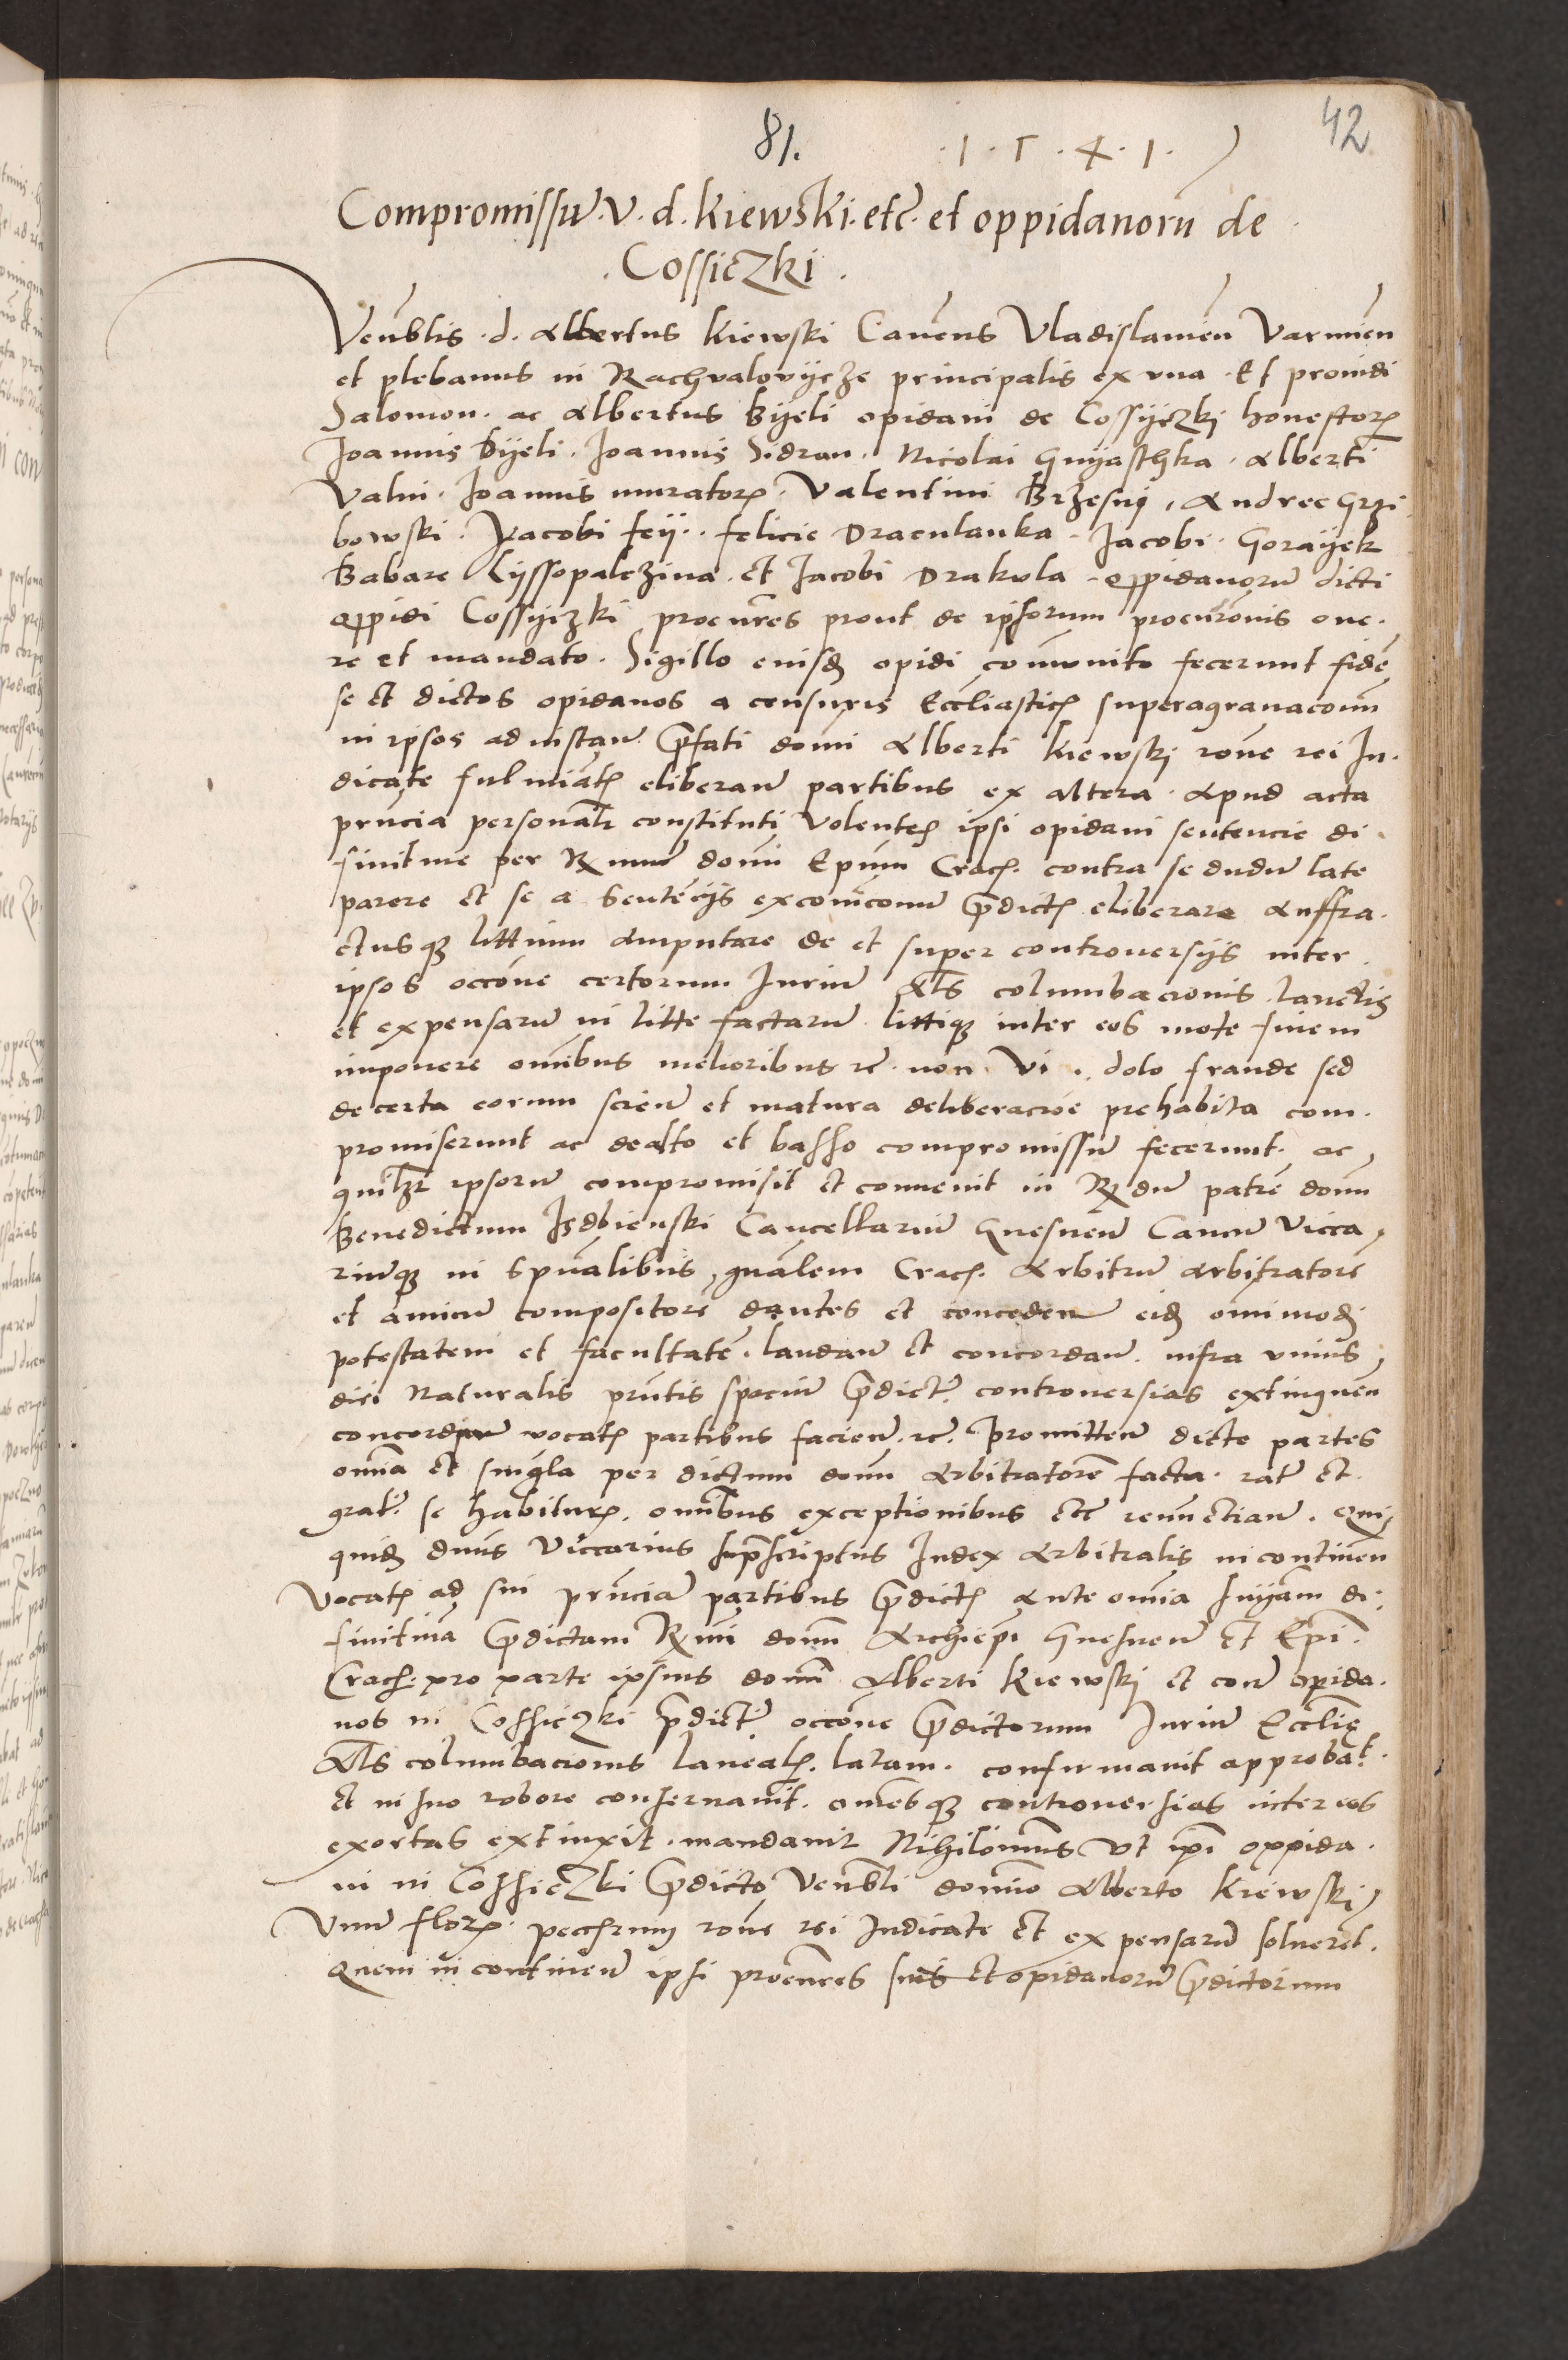 42
81. · 1 · 5 · 4 · 1 ·
Compromissu͂ · v · d · Kiewski · etc̃ · et oppidanoru͂ de
· Cossiczki ·
Ven̄blis · d · Albertus Kiewski Can̄cus Vladislauien̄ Varmien̄
et plebanus in Rachvalovycze principalis ex vna · Et prouidi
Salomon · ac Albertus Byeli opidani de Cossyczki honestoꝝ
Joannis Byeli · Joannis Sidran · Nicolai Gnyasthka · Alberti
Valni · Joannis muratoꝝ · Valentini Brzesny, Andree Grzi
bowski · Jacobi fey · felicie Draculanka · Jacobi · Gorayek
Babare Lyssopalczina · et Jacobi Drakula · oppidanoru͂ dicti
oppidi Cossyczki procur̄es prout de ipsorum procur̄onis one ·
re et mandato · Sigillo eiusd̨ opidi co͂mmunito fecerunt fide͂
se et dictos opidanos a censuris Eccl̄iasticꝭ superagrauacom̄
in ipsos ad instan͂ p̄fati domi Alberti Kiewski rōne rei Ju ·
dicate fulmi͂atꝭ eliberan͂ partibus ex altera · apud acta
pr̄ncia personal̄r constituti volentes ipsi opidani sentencie di
finit̄ue per R̄mum domi͂ Ep̄um Cracꝭ · contra se dudu͂ late
parere et se a sente͂cijs exco͂icōnu͂ p̄dictꝭ eliberare Anffra ·
ctusqꝫ littium amputare de et super controuersijs inter
ipsos occōne certorum Juriu͂ al̄s columbacionis lanealiu͂
et expensaru͂ in litte factaru͂ littiqꝫ inter eos mote finem
imponere om̄ibus melioribus ꝛc̃ · non vi · dolo fraude sed
de certa eorum scien͂ et matura deliberacio͂e prehabita com ·
promiserunt ac dealto et basso compromissu͂ fecerunt · ac
quil̄ꝫ ipsoru͂ compromisit et conuenit in R̄ndu͂ patre͂ domi͂
Benedictum Isdbienski Cancellariu͂ Gnesnen͂ Cancu͂ Vicca
riu͂qꝫ in sp̄ualibus gn̄alem Cracꝭ · Arbitru͂ arbitratore͂
et amicu͂ compositore͂ dantes et conceden͂ eid̨ om̄imod̨
potestatem et facultate͂ · laudan͂ et concordan͂ · infra vnius
diei Naturalis pn̄tis spaciu͂ p̄dict͂ controuersias extinguen͂
concordian͂ vocatꝭ partibus facien͂ · ꝛc̃ · Promitten͂ dicte partes
om̄ia et sing̅la per dictum domi͂ Arbitratore͂ facta · rat͂ et
grat͂ se habituꝝ · om̄ibus exceptionibus etc̃ renu͂ctian͂ · Qui
quid̨ dn̄us Viccarius sup̄scriptus Judex Arbitralis in continen͂
vocatꝭ ad sui pr̄ncia͂ partibus p̄dictꝭ ante om̄ia sn̄iam di ·
finit̄iua͂ p̄dictam R̄mi domi͂ Archiep̄i Gnesnen͂ et Ep̄i
Cracꝭ · pro parte ipsius domi͂ Alberti Kiewski et con͂ opida ·
nos in Cossiczki p̄dict͂ occōne p̄dictorum Juriu͂ Eccl̄ie
al̄s columbacionis lanealꝭ · latam · confirmauit approba͂t ·
et in suo robore conseruauit · om̄esqꝫ controuersias inter eos
exortas extinxit · mandauit Nihilōmi͂us vt ip̄i oppida ·
ni in Cossieczki p̄dicto ven̄bli domino Alberto Kiewski
Vnu͂ floꝝ · rōne rei Judicate et expensaru͂ soluerēt ·
Quem in continen͂ ipsi procur̄es suis et opidanoru͂ p̄dictorum